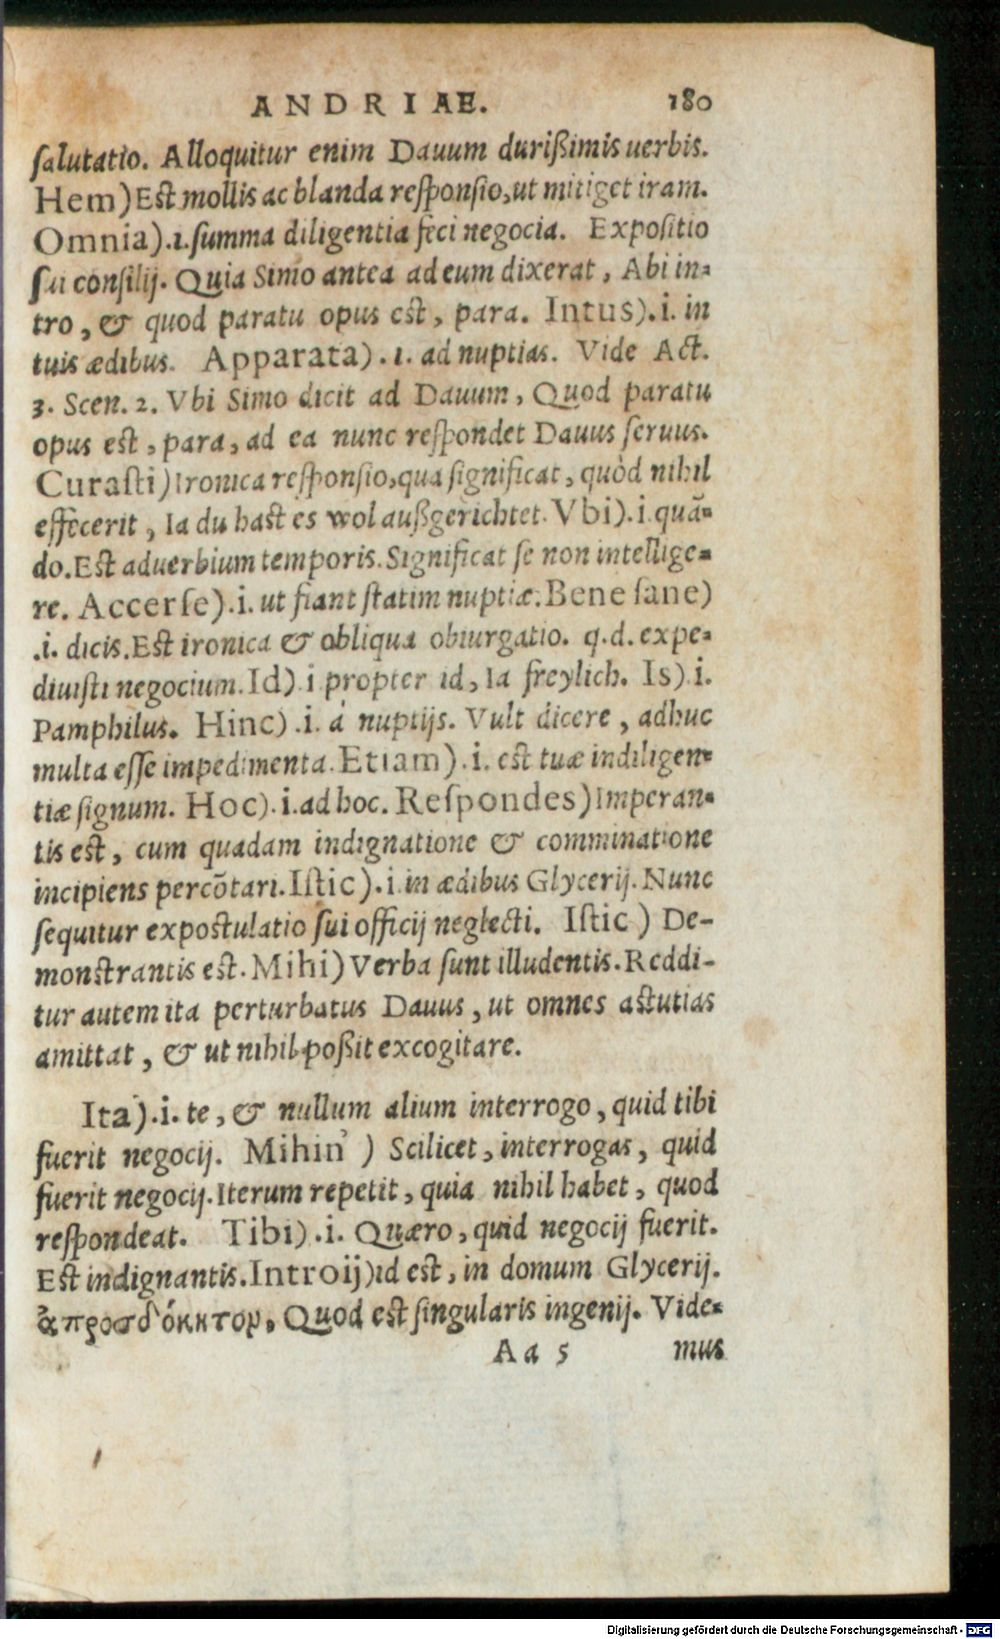 ANDRIAE. 180
salutatio. Alloquitur enim Dauum durißimis uerbis.
Hem) Est mollis ac blanda responsio, ut mitiget iram.
Omnia).i. summa diligentia feci negocia. Expositio
sui consilij. Quia Simo antea ad eum dixerat, Abi in-
tro, & quod paratu opus est, para. Intus).i. in
tuis ædibus. Apparata).i. ad nuptias. Vide Act.
3. Scen. 2. Vbi Simo dicit ad Dauum, Quod paratu
opus est, para, ad ea nunc respondet Dauus seruus.
Curasti) Ironica responsio, qua significat, quòd nihil
effecerit, Ia du hast es wol außgerichtet. Vbi).i. quã-
do. Est aduerbium temporis. Significat se non intellige-
re. Accerse).i. ut fiant statim nuptiæ. Bene sane)
.i. dicis. Est ironica & obliqua obiurgatio. q.d. expe-
diuisti negocium. Id).i propter id, Ia freylich. Is).i.
Pamphilus. Hinc).i. à nuptijs. Vult dicere, adhuc
multa esse impedimenta. Etiam).i. est tuæ indiligen-
tiæ signum. Hoc).i. ad hoc. Respondes) Imperan-
tis est, cum quadam indignatione & comminatione
incipiens percõtari. Istic).i. in ædibus Glycerij. Nunc
sequitur expostulatio sui officij neglecti. Istic) De-
monstrantis est. Mihi) Verba sunt illudentis. Reddi-
tur autem ita perturbatus Dauus, ut omnes astutias
amittat, & ut nihil poßit excogitare.
Ita).i. te, & nullum alium interrogo, quid tibi
fuerit negocij. Mihin') Scilicet, interrogas, quid
fuerit negocij. Iterum repetit, quia nihil habet, quod
respondeat. Tibi).i. Quæro, quid negocij fuerit.
Est indignantis. Introij) id est, in domum Glycerij.
ἀπροσδόκητον, Quod est singularis ingenij. Vide-
Aa 5 mus
Digitalisierung gefördert durch die Deutsche Forschungsgemeinschaft - DFG